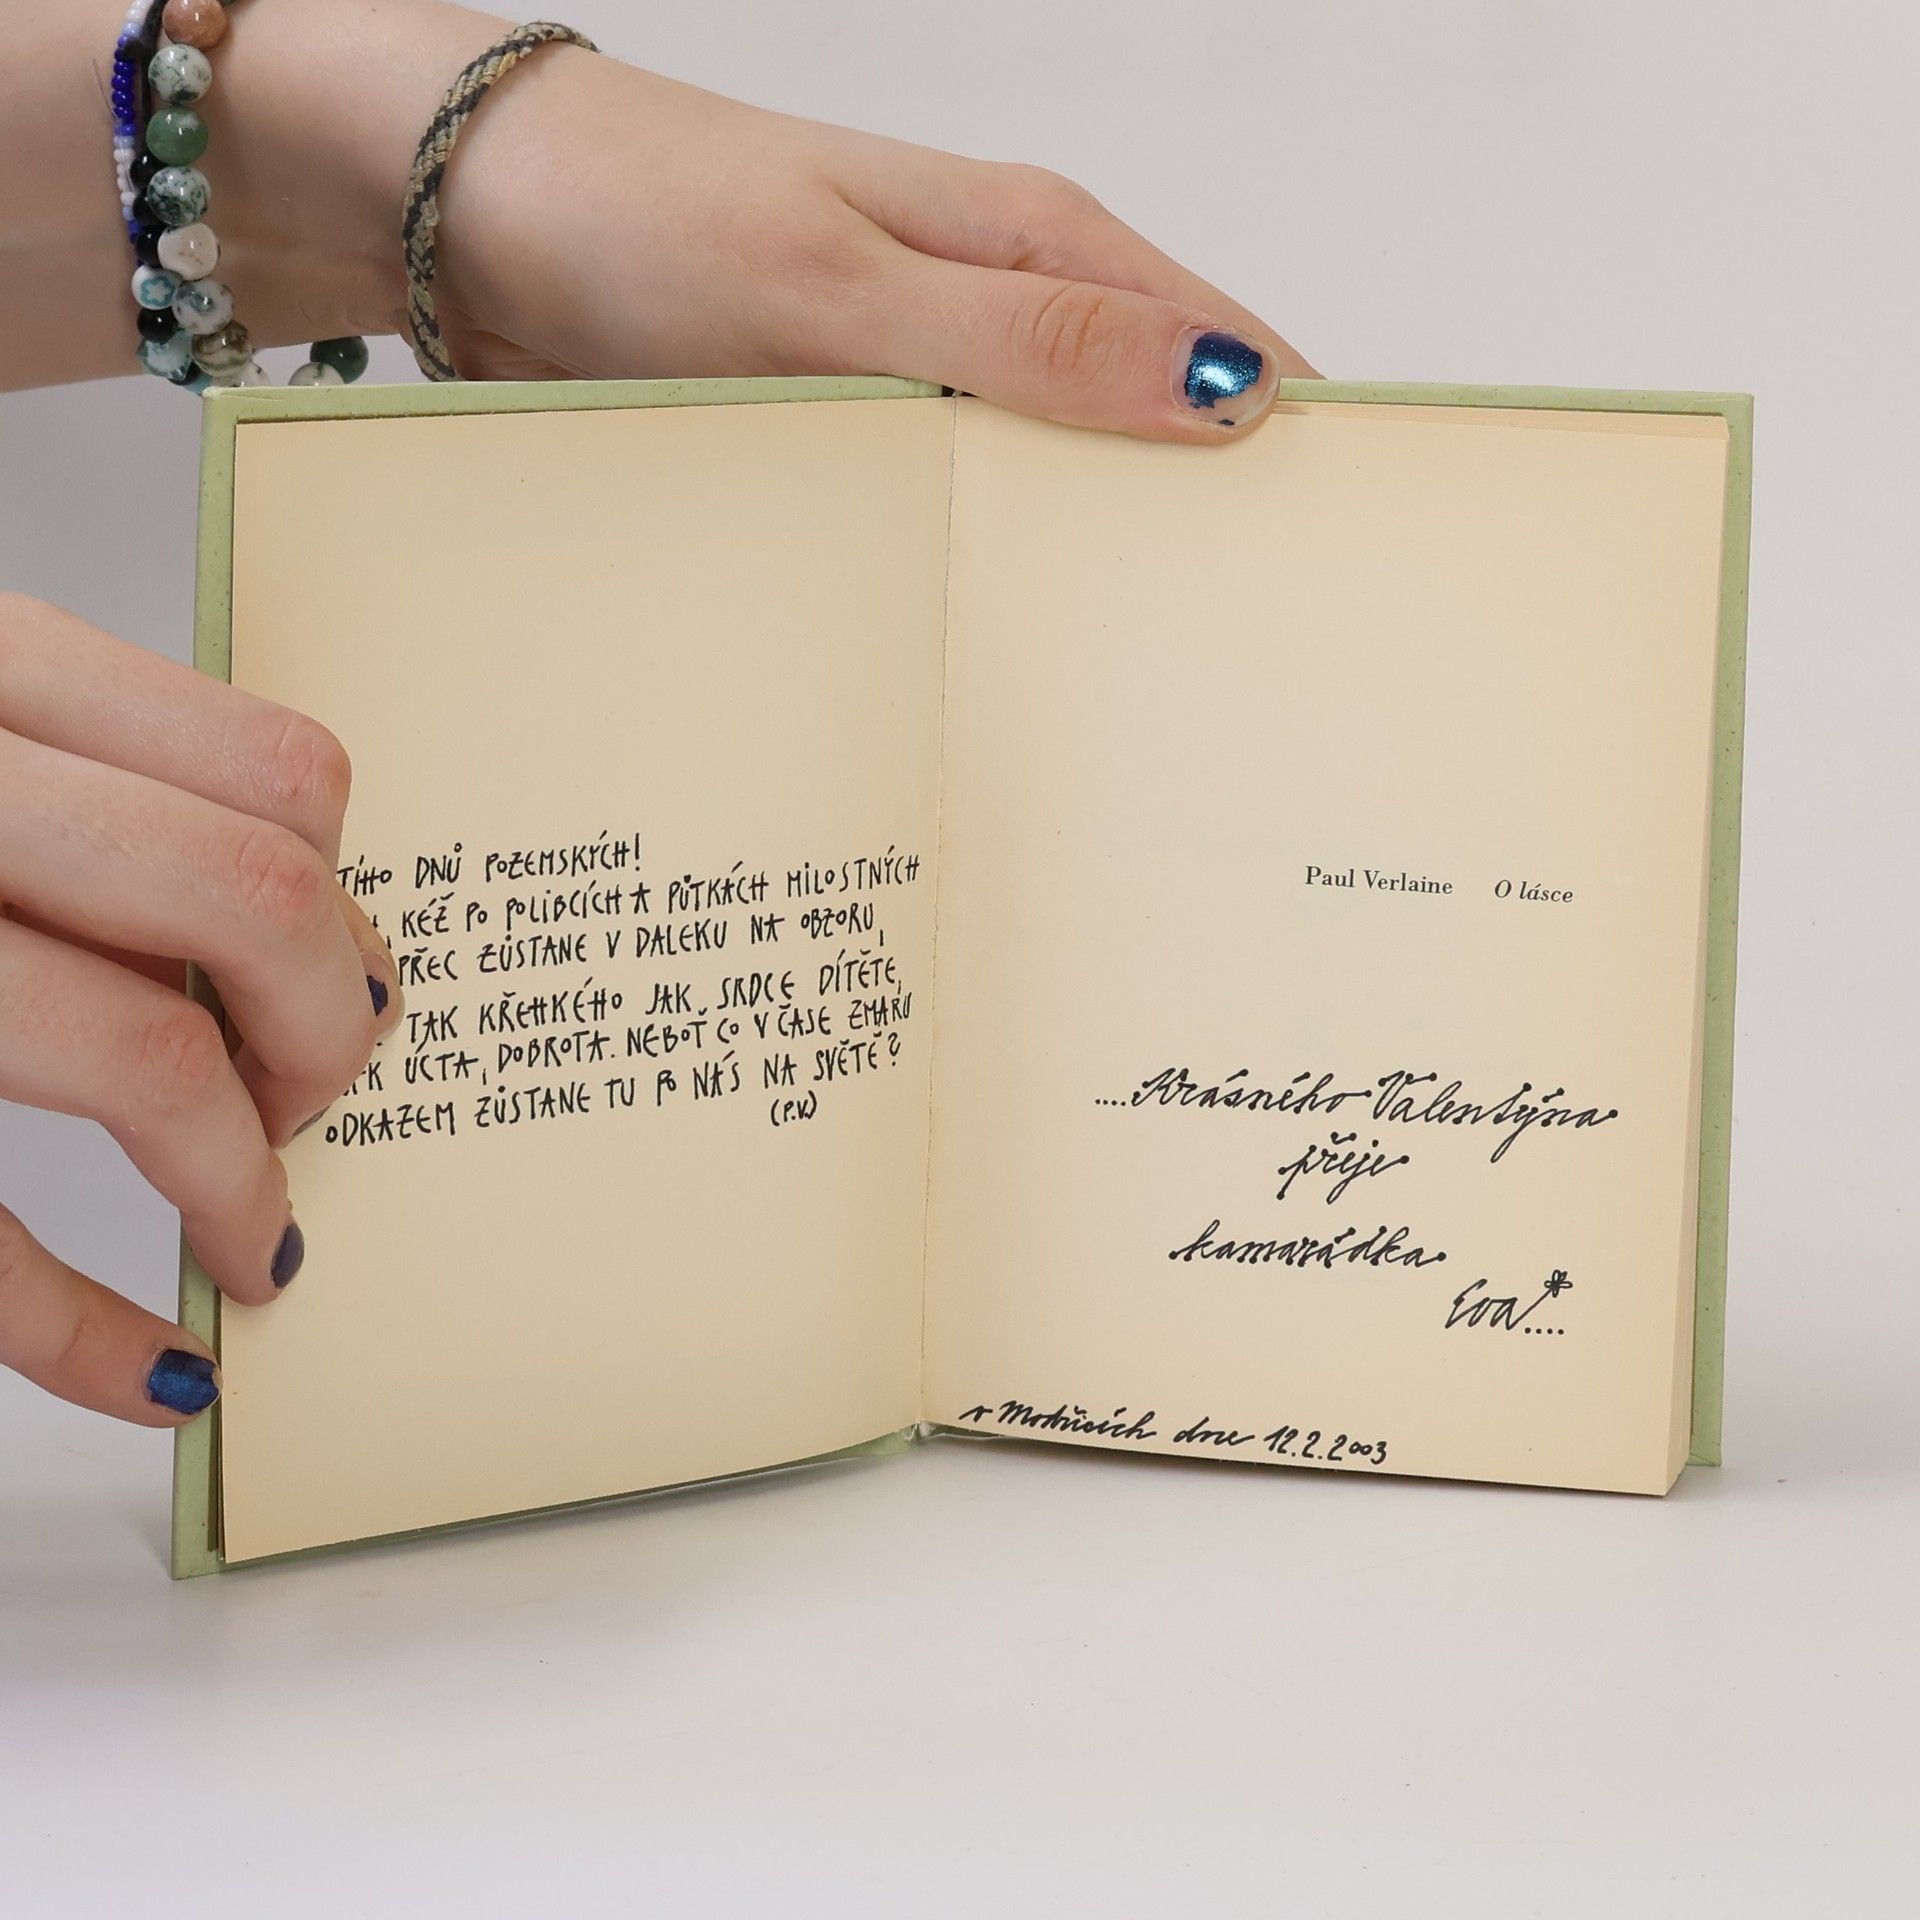 TÍHO DNŮ POZEMSKÝCH!
, KÉŽ PO POLIBCÍCH A PŮTKÁCH MILOSTNÝCH
PŘEC ZŮSTANE V DALEKU NA OBZORU,
TAK KŘEHKÉHO JAK SRDCE DÍTĚTE,
ÚCTA, DOBROTA. NEBOŤ CO V ČASE ZMARU
ODKAZEM ZŮSTANE TU PO NÁS NA SVĚTĚ?
(P.V.)
Paul Verlaine O lásce
....Krásného Valentýna
přeje
kamarádka
Eva....
v Modřicích dne 12.2.2003